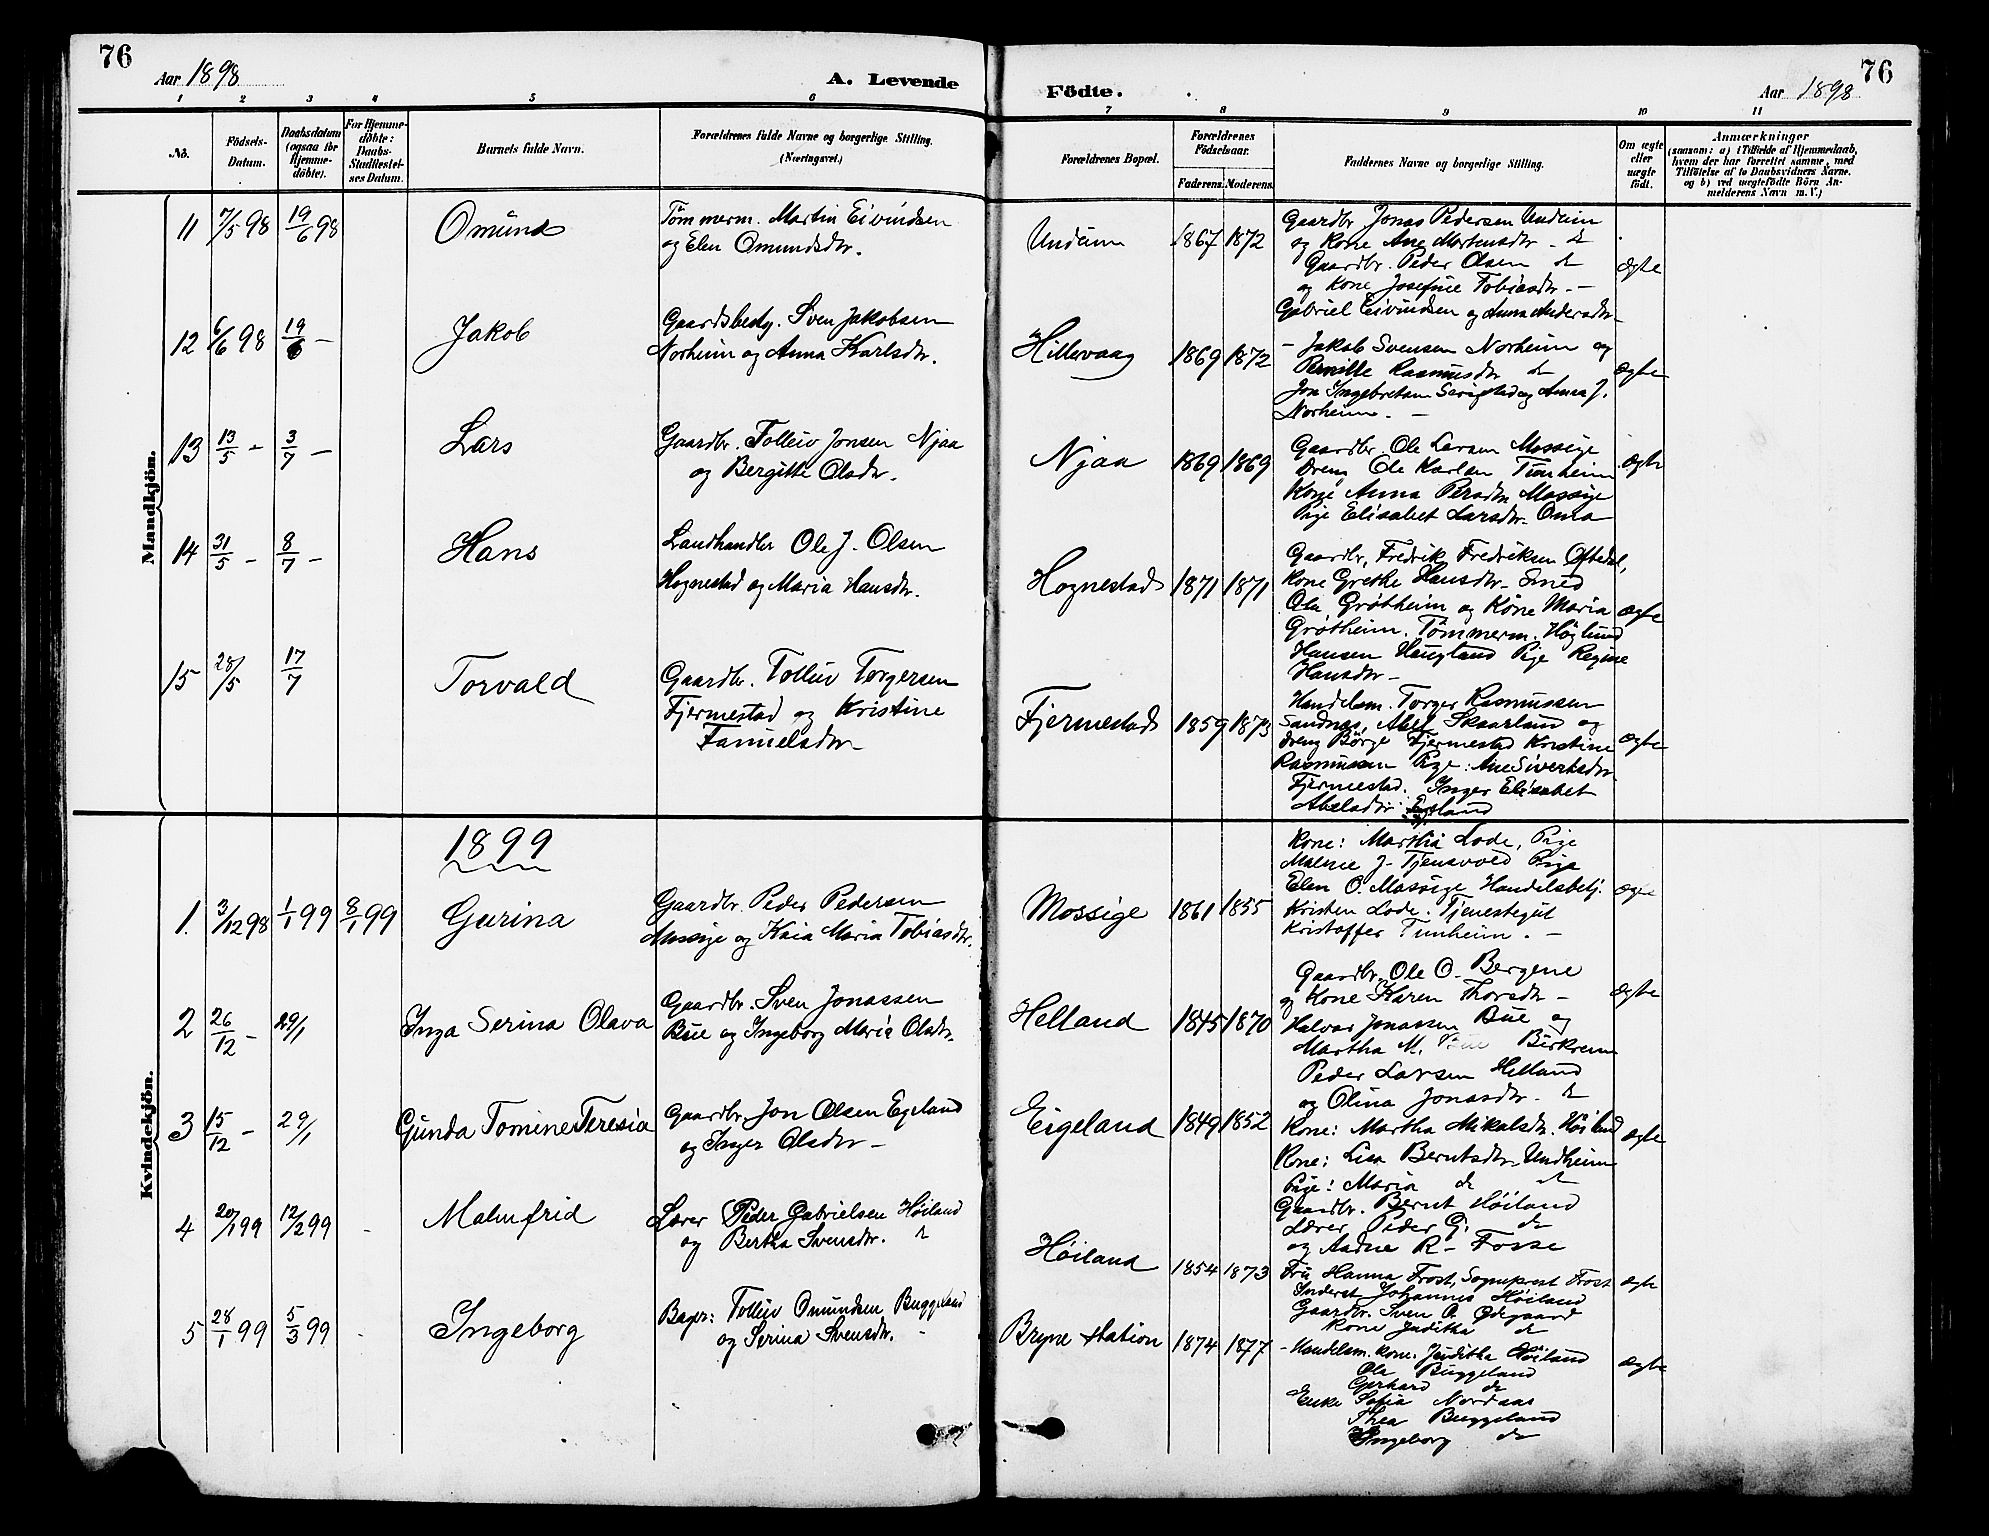 76
Aar 1898
A. Levende
Födte.
Aar 1898
76
1 2 3 4 5 6 7 8 9 10 11
No.
Födsels-Datum.
Daabsdatum (ogsaa for Hjemme-döbte).
For Hjemme-döbte: Daabs-Stadfæstel-ses Datum.
Barnets fulde Navn.
Forældrenes fulde Navne og borgerlige Stilling. (Næringsvei.)
Forældrenes Bopæl.
Forældrenes Födselsaar.
Faderens. Moderens.
Faddernes Navne og borgerlige Stilling.
Om ægte eller uægte födt.
Anmærkninger
(saasom: a) i Tilfælde af Hjemmedaab,
hvem der har forrettet samme, med
Tilföielse af to Daabsvidners Navne.
og b) ved uægtefödte Börn An-
melderens Navn m. V.)
Mandkjön.
11 7/5 98 19/6 98 Omund
Tömmerm. Martin Eivindsen
og Elen Omundsdtr.
Undeim 1867 1872
Gaardbr Jonas Pedersen Undeim
og Kone Ane Mortensdtr - do
Gaardbr. Peder Olsen do
og Kone Josefine Tobiasdtr. -
Gabriel Eivindsen og Anna Andersdtr -
ægte
12 6/6 98 19/6 - Jakob
Gaardsbesty. Sven Jakobsen
Norheim og Anna Karlsdtr.
Hillevaag 1869 1872
- Jakob Svensen Norheim og
Pernille Rasmusdtr do
Jon Ingebretsen og Anna J.
Norheim. -
ægte
13 13/5 - 3/7 - Lars
Gaardbr. Tolleiv Jonsen Njaa
og Bergitte Olsdtr.
Njaa 1869 1869
Gaardbr. Ole Larsen Mossige
Dreng Ole Karlsen Tunheim
Kone Anna Persdtr Mossige
Pige Elisabet Larsdtr. Oma
ægte
14 31/5 - 8/7 - Hans
Landhandler Ole J. Olsen
Hognestad og Maria Hansdtr.
Hognestad 1871 1871
Gaardbr. Fredrik Fredriksen Oftedal,
Kone Grethe Hansdtr - Smed
Ole Grötheim og Kone Maria
Grötheim. Tömmerm. Höglund
Hansen Haugland Pige Regine
Hansdtr -
ægte
15 28/5 17/7 Torvald
Gaardbr. Tolleiv Torgersen
Fjermestad og Kristine
Tanuelsdtr
Fjermestad 1859 1873
Handelsm. Torger Rasmussen
Sandnæs, Abel Skaarland og
Dreng Börge Fjermestad Kristine
Rasmussen Pige: Ane Sivertsdtr
Fjermestad. Inger Elisabet
Abelsdtr
ægte
Kvindekjön.
1899
1. 3/12 98 1/1 99 8/1 99 Gurina
Gaardbr. Peder Pedersen
Mossige og Kaia Maria Tobiasdtr.
Mossige 1861 1855
Kone: Martha Lode, Pige
Malene J. Tjensvold Pige
Elen O. Mossige Handelsbetj.
Kristen Lode. Tjenestegut
Kristoffer Tunheim. -
ægte
2 26/12 - 29/1 Inga Serina Olava
Gaardbr. Sven Jonassen
Bue og Ingeborg Maria Olsdtr.
Helland 1845 1870
Gaardbr. Ole O. Bergene
og Kone Karen Thorsdtr -
Halvar Jonassen Bue og
Martha M. Birkrem
Peder Larsen Helland
og Olina Jonasdtr. do
ægte
3 15/12 - 29/1 Gunda Tomine Teresia
Gaardbr. Jon Olsen Egeland
og Inger Olsdtr -
Eigeland 1849 1852
Kone: Martha Mikalsdtr. Höiland
Kone: Lisa Berntsdtr Undheim
Pige: Maria do do
Gaardbr. Bernt Höiland
Lærer Peder G. do
og Aadne R. Fosse
ægte
4 20/1 99 12/2 99 Malmfrid
Lærer Peder Gabrielsen Höiland
og Bertha Svensdtr. do
Höiland 1854 1873
Fru Hanna Frost, Sogneprest Frost
Inderst Johannes Höiland
Gaardbr. Sven O. Ödegaard
Kone Juditha do
ægte
5 28/1 99 5/3 99 Ingeborg
Bager: Tolleiv Omundsen Buggeland
og Serina Svensdtr.
Bryne Station 1874 1877
- Handelsm. kone: Juditha Höiland
Ole Buggeland
Gerhard do
Enke Sofia Nordaas
Thea Buggeland
Ingeborg do
ægte